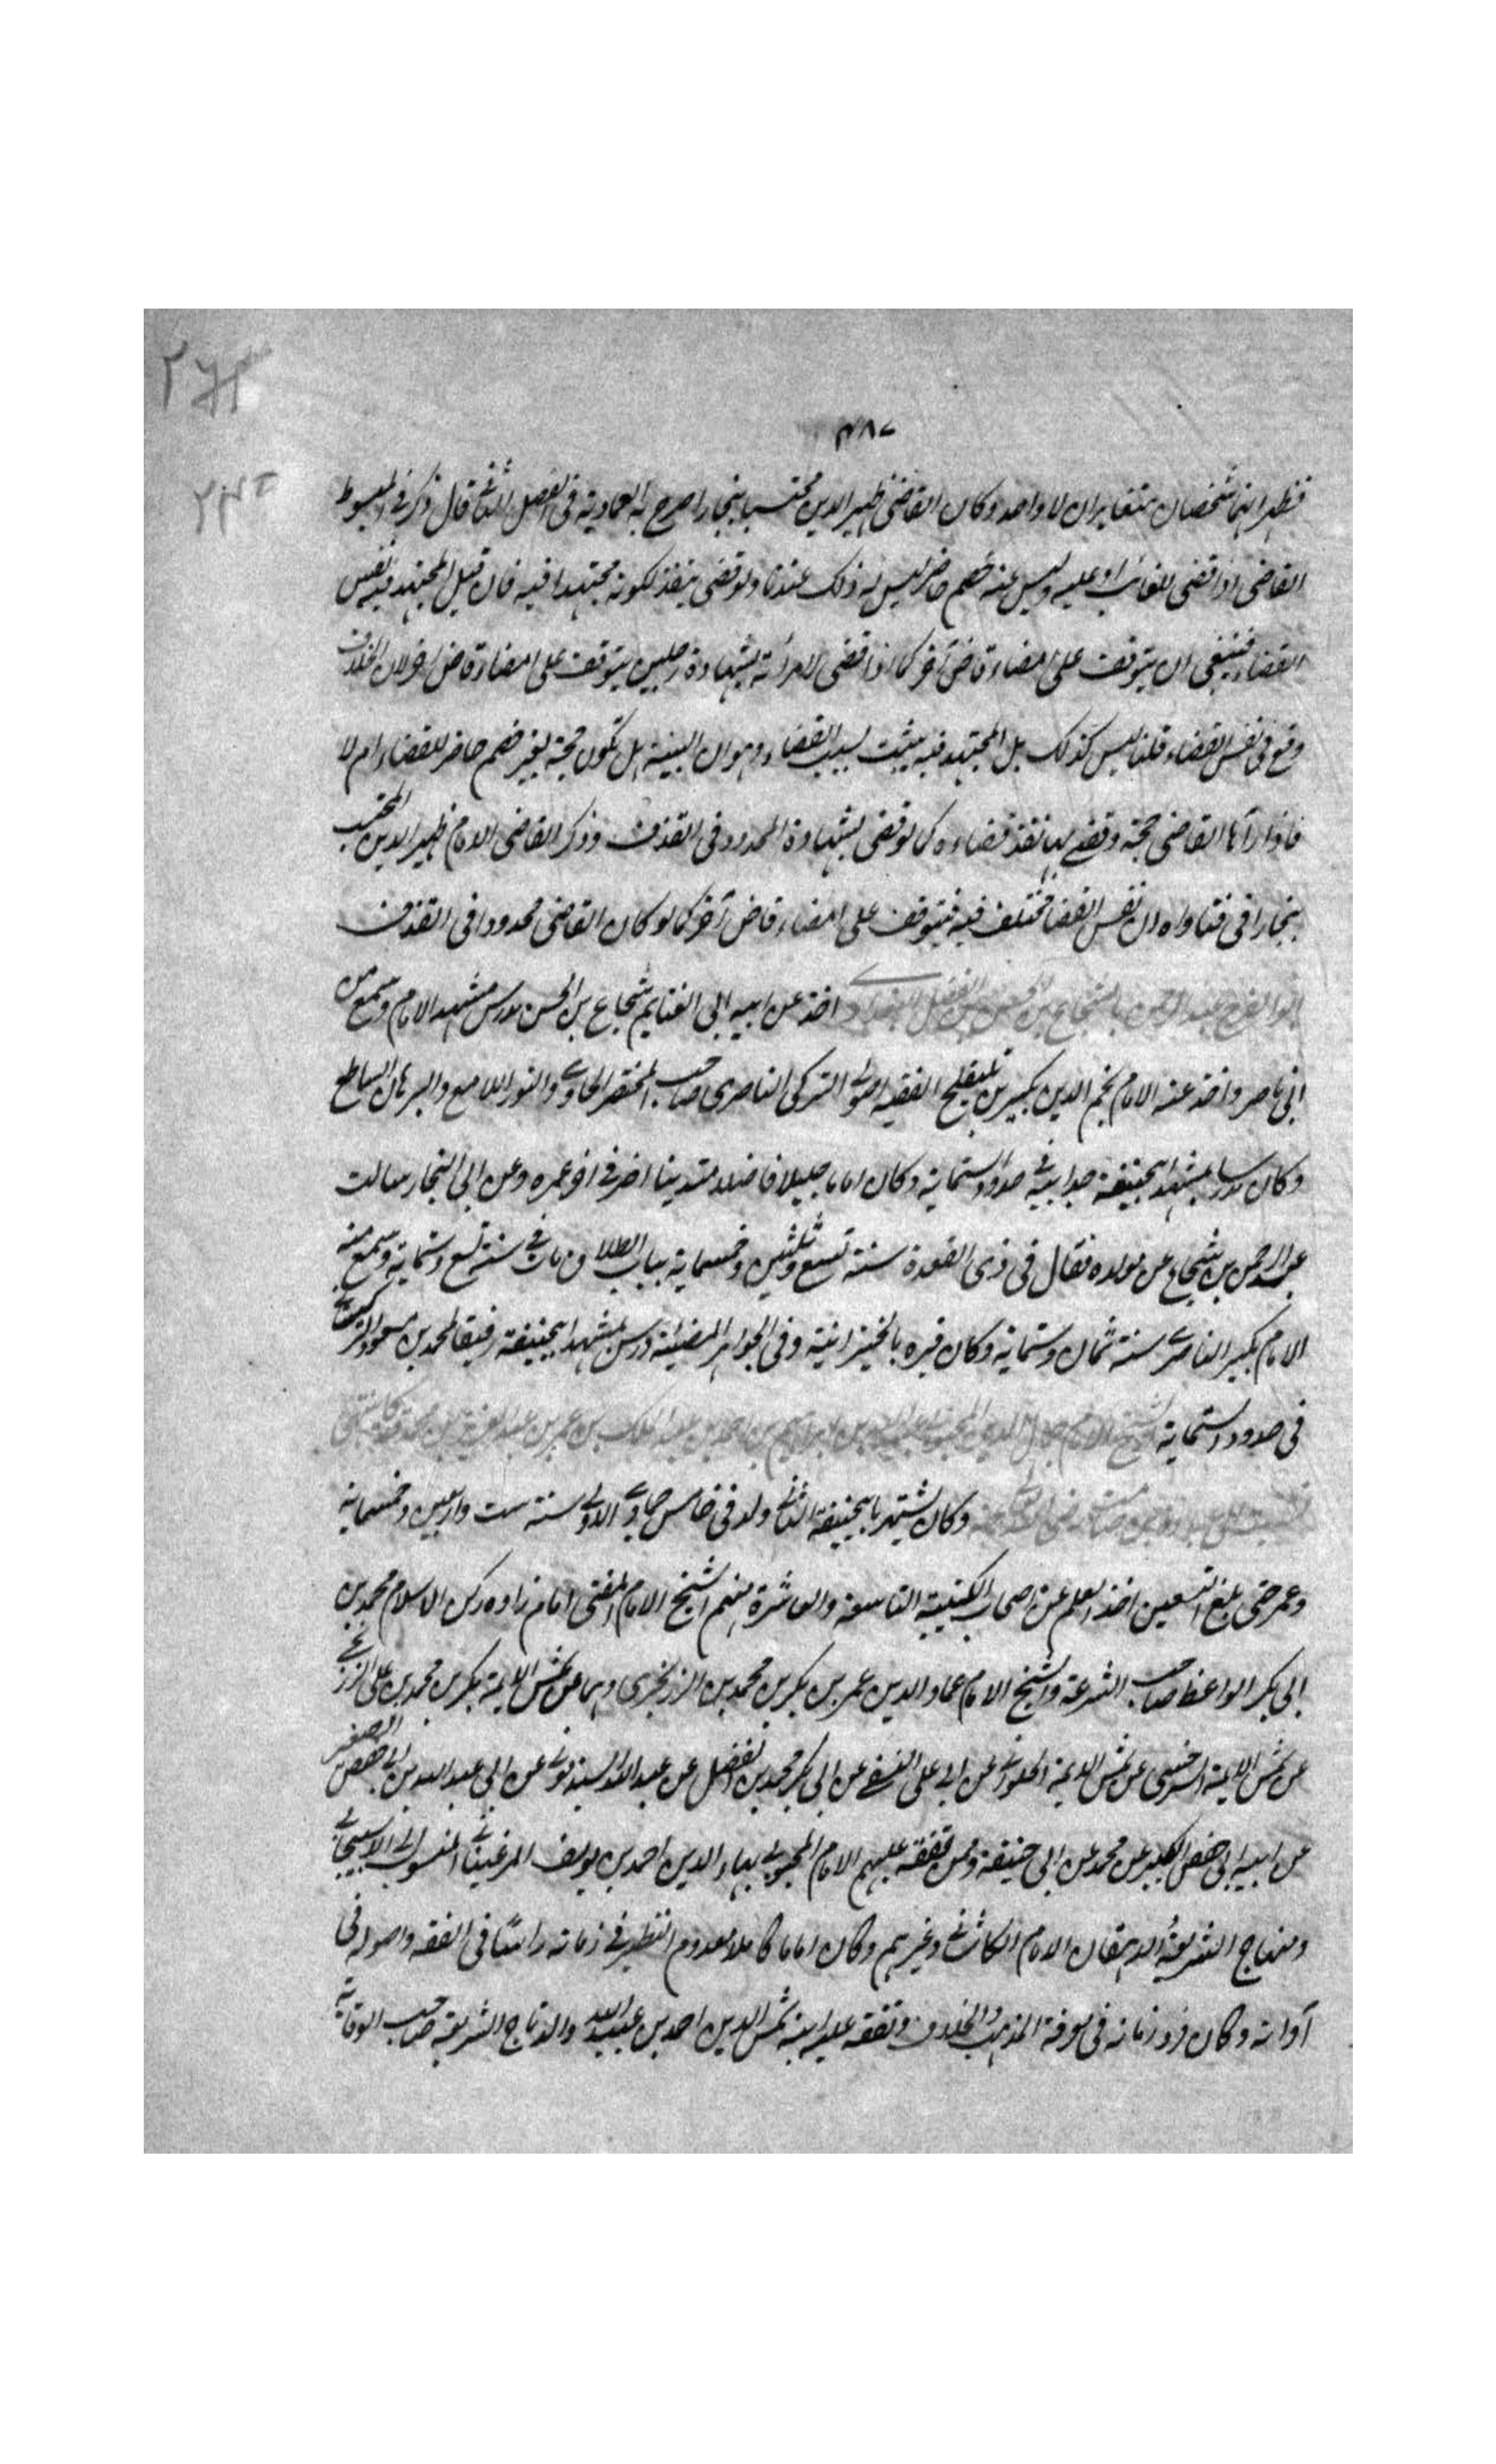 ٤٨٧
فظهر انهما شخصان متغايران لا واحد وكان القاضى ظهير الدين محتسبا ببخارا صرح به العمادية فى الفصل الثانى قال ذكر فى المبسوط
القاضى اذا قضى للغائب او عليه وليس عنه خصم حاضر ليس له ذلك عندنا ولو قضى ينفذ لكونه مجتهدا فيه فان قيل المجتهد فيه نفس
القضاء فينبغى ان يتوقف على امضاء قاض آخر كما اذا قضى لامرأته بشهادة رجلين يتوقف على امضاء قاض آخر لان الخلاف
وقع فى نفس القضاء قلنا ليس كذلك بل المجتهد فيه يثبت لسبب القضاء وهو ان البينة هل تكون حجة بغير خصم حاضر للقضاء ام لا
فاذا رآها القاضى حجة وقضى بها نفذ قضاءه كما لو قضى بشهادة المحدود فى القذف وذكر القاضى الامام ظهير الدين المحتسب
ببخارا فى فتاواه ان نفس القضا مختلف فيه فيتوقف على امضاء قاض آخر كما لو كان القاضى محدودا فى القذف
ابو الفرج عبد الرحمن بن شجاع بن الحسن بن الفضل البغدادى اخذ عن ابيه ابى الغنايم شجاع بن الحسن مدرس مشهد الامام وسمع من
ابن ناصر واخذ عنه الامام نجم الدين بكبرس بن يلنقلج الفقيه الاصولى التركى الناصرى صاحب المختصر الحاوى والنور اللامع والبرهان الساطع
وكان مدرسا بمشهد ابيحنيفة بعد ابيه فى حدود الستماية وكان اماما جليلا فاضلا متدينا اضر فى آخر عمره وعن ابن النجار سالت
عبد الرحمن بن شجاع عن مولده فقال فى ذى القعدة سنة تسع وثلثين وخمسماية بباب الطاق ومات فى سنة تسع وستماية وسمع منه
الامام بكبرس الناصرى سنة ثمان وستماية وكان قبره بالخيزرانية وفى الجواهر المضيئة درس بمشهد ابيحنيفة رفيقا لمحمد بن مسعود التركستانى
فى حدود الستماية الشيخ الامام جمال الدين المحبوبى عبيد الله بن ابراهيم بن احمد بن عبد الملك بن عمر بن عبد العزيز بن محمد
وكان يشتهر بابيحنيفة الثانى ولد فى خامس جمادى الاولى سنة ست واربعين وخمسماية
وعمر حتى بلغ التسعين اخذ العلم عن اصحاب الكتيبة التاسعة والعاشرة منهم الشيخ الامام المفتى امام زاده ركن الاسلام محمد بن
ابى بكر الواعظ صاحب الشرعة والشيخ الامام عماد الدين عمر بن بكر بن محمد بن الزرنجرى وهما عن شمس الايمة بكر بن محمد بن على الزرنجرى
عن شمس الايمة السرخسى عن شمس الايمة الحلوانى عن ابى على النسفى عن ابى بكر محمد بن الفضل عن عبد الله السبذمونى عن ابى عبد الله بن ابى حفص الصغير
عن ابيه ابى حفص الكبير عن محمد عن ابى حنيفة وممن تفقه عليهم الامام المحبوبى بهاء الدين احمد بن يوسف المرغينانى المنسوب الى الاسبيجابى
ومنهاج الشريعة والدهقان الامام الكاشانى وغيرهم وكان اماما كاملا معدوم النظير فى زمانه راسا فى الفقه واصوله فى
آوانه وكان فرد زمانه فى معرفة المذهب والخلاف وتفقه عليه ابنه شمس الدين احمد بن عبيد الله والد تاج الشريعة صاحب الوقاية